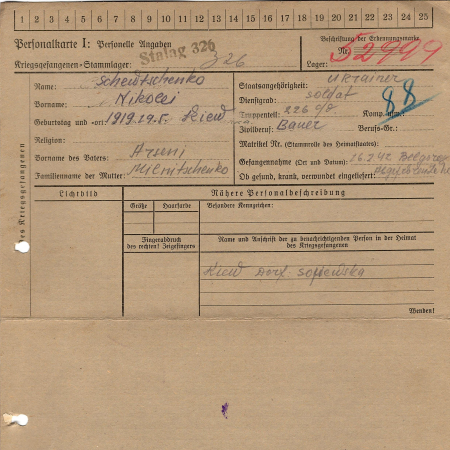 1 2 3 4 5 6 7 8 9 10 11 12 13 14 15 16 17 18 19 20 21 22 23 24 25
Personalkarte I: Personelle Angaben
Stalag 326
Beschriftung der Erkennungsmarke
Nr. 52999
Kriegsgefangenen-Stammlager: 326
Lager:
des Kriegsgefangenen
Name: Schewtschenko
Vorname: Nikolei
Geburtstag und -ort: 1919.19.5. Kiew
Religion:
Vorname des Vaters:
Familienname der Mutter:
Staatsangehörigkeit: Ukrainer
Dienstgrad: Soldat
Truppenteil: 226 Komp. usw.:
88
Zivilberuf: Bauer Berufs-Gr.:
Matrikel Nr. (Stammrolle des Heimatstaates):
Gefangennahme (Ort und Datum):
Ob gesund, krank, verwundet eingeliefert:
Lichtbild
Nähere Personalbeschreibung
Größe Haarfarbe Besondere Kennzeichen:
Fingerabdruck des rechten! Zeigefingers
Name und Anschrift der zu benachrichtigenden Person in der Heimat
des Kriegsgefangenen
Kiew Dorf. Sofiewska
Wenden!